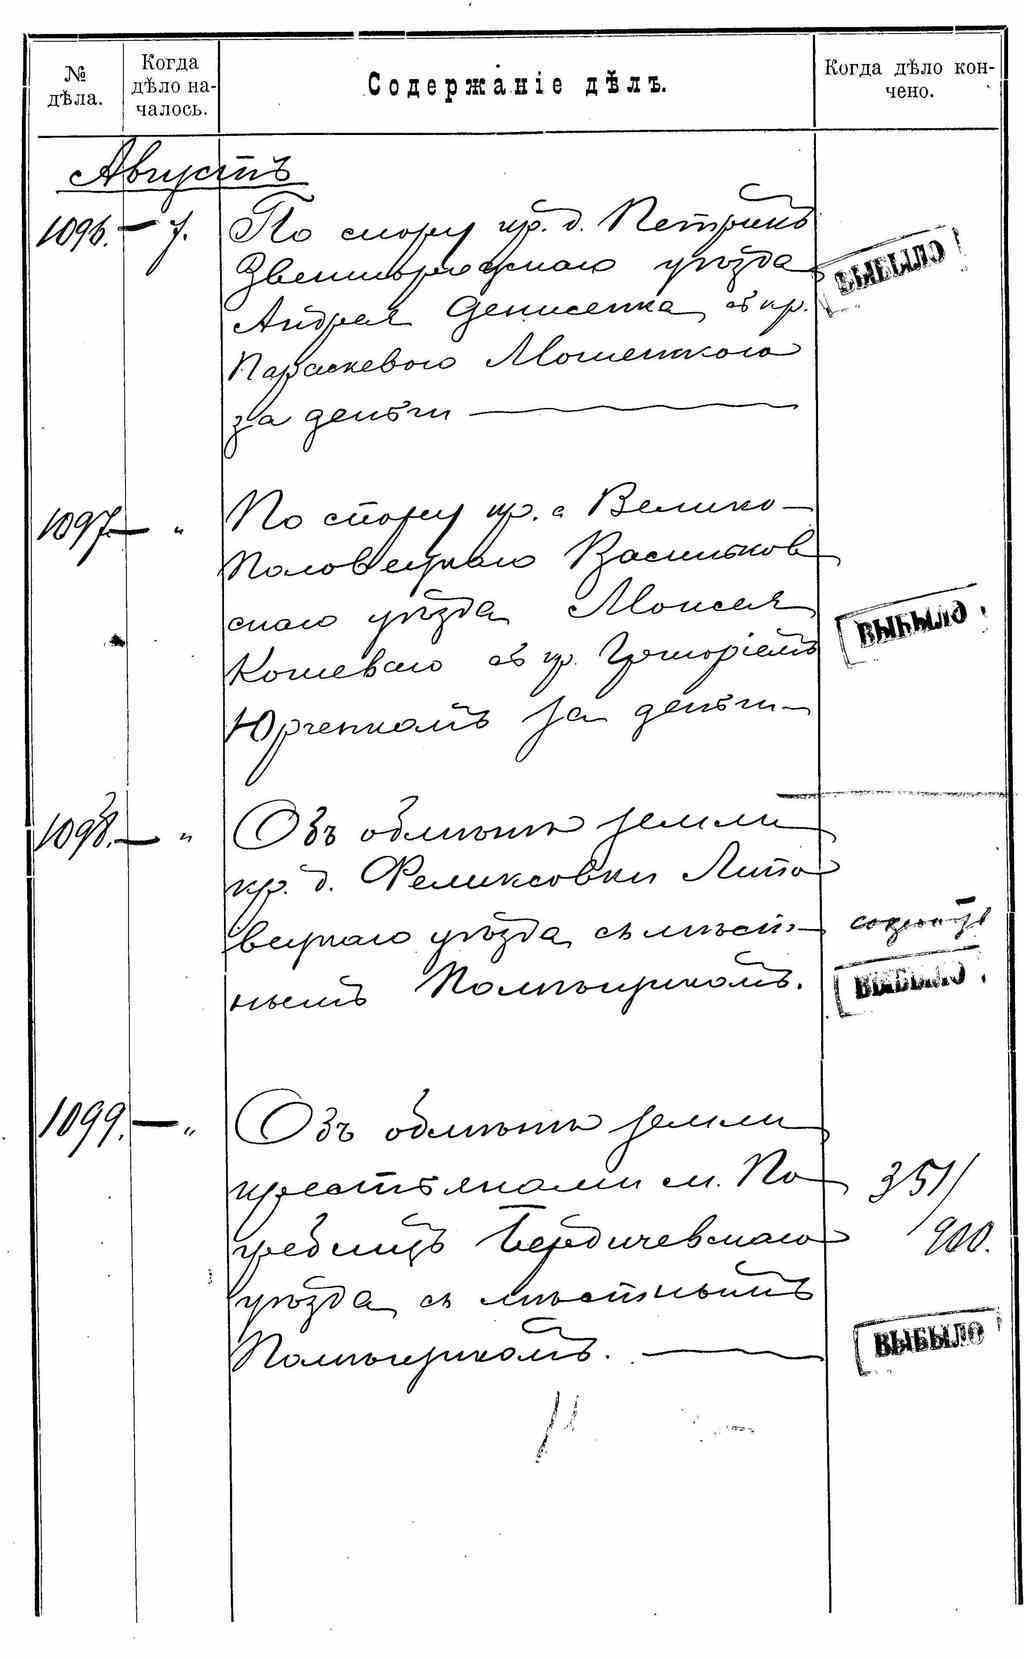 № дѣла.
Когда дѣло началось.
Содержаніе дѣлъ.
Когда дѣло кончено.
Августъ
1096. — 7. По спору кр. д. Петрикъ
Звенигородскаго уѣзда
Андрея Денисенка съ кр.
Параскевою Мошенскою
за деньги
ВЫБЫЛО
1097. — " По спору кр. с Велико-
Половецкаго Васильков
скаго уѣзда Моисея
Кошеваго съ кр. Григоріемъ
Юрченкомъ за деньги
ВЫБЫЛО
1098. — " Объ обмѣнѣ земли
кр. д. Феликсовки Липо
вецкаго уѣзда съ мѣст-
нымъ Помѣщикомъ.
ВЫБЫЛО
1099. — " Объ обмѣнѣ земли
крестьянами м. По
гребищъ Бердичевскаго
уѣзда съ мѣстнымъ
Помѣщикомъ.
351/
900.
ВЫБЫЛО